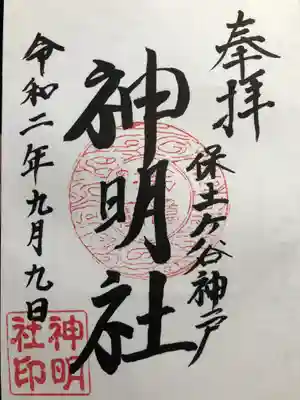 奉拝
保土ケ谷神戸
神明社
令和二年九月九日
神明
社印